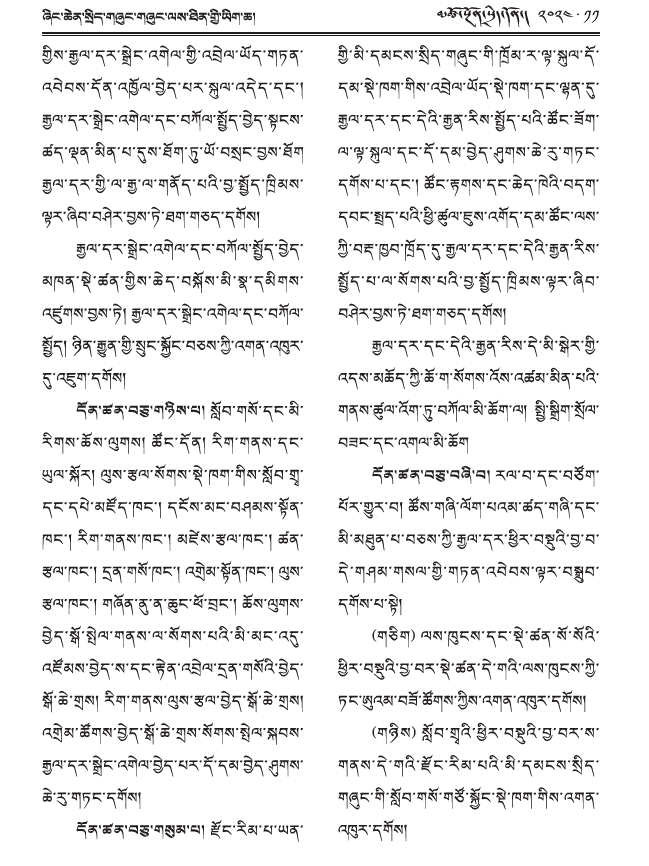 ཞིང་ཆེན་སྲིད་གཞུང་གཞུང་ལས་ཐིན་གྱི་ཡིག་ཆ།
༢༠༢༤·༡༡
གྱིས་རྒྱལ་དར་སྒྲེང་འགེལ་གྱི་འབྲེལ་ཡོད་གཏན་
འབེབས་དོན་འཁྱོལ་བྱེད་པར་སྐུལ་འདེད་དང་།
རྒྱལ་དར་སྒྲེང་འགེལ་དང་བཀོལ་སྤྱོད་བྱེད་སྟངས་
ཚད་ལྡན་མིན་པ་དུས་ཐོག་ཏུ་ཡོ་བསྲང་བྱས་ཐོག
རྒྱལ་དར་གྱི་ལ་རྒྱ་ལ་གནོད་པའི་བྱ་སྤྱོད་ཁྲིམས་
ལྟར་ཞིབ་བཤེར་བྱས་ཏེ་ཐག་གཅད་དགོས།
རྒྱལ་དར་སྒྲེང་འགེལ་དང་བཀོལ་སྤྱོད་བྱེད་
མཁན་སྡེ་ཚན་གྱིས་ཆེད་བསྐོས་མི་སྣ་དམིགས་
འཛུགས་བྱས་ཏེ། རྒྱལ་དར་སྒྲེང་འགེལ་དང་བཀོལ་
སྤྱོད། ཉིན་རྒྱུན་གྱི་སྲུང་སྐྱོང་བཅས་ཀྱི་འགན་འཁུར་
དུ་འཇུག་དགོས།
དོན་ཚན་བཅུ་གཉིས་པ། སློབ་གསོ་དང་མི་
རིགས་ཆོས་ལུགས། ཚོང་དོན། རིག་གནས་དང་
ཡུལ་སྐོར། ལུས་རྩལ་སོགས་སྡེ་ཁག་གིས་སློབ་གྲྭ་
དང་དཔེ་མཛོད་ཁང་། དངོས་མང་བཤམས་སྟོན་
ཁང་། རིག་གནས་ཁང་། མཛེས་རྩལ་ཁང་། ཚན་
རྩལ་ཁང་། དྲན་གསོ་ཁང་། འགྲེམ་སྟོན་ཁང་། ལུས་
རྩལ་ཁང་། གཞོན་ནུ་ན་ཆུང་ཕོ་བྲང་། ཆོས་ལུགས་
བྱེད་སྒོ་སྤེལ་གནས་ལ་སོགས་པའི་མི་མང་འདུ་
འཛོམས་བྱེད་ས་དང་རྟེན་འབྲེལ་དྲན་གསོའི་བྱེད་
སྒོ་ཆེ་གྲས། རིག་གནས་ལུས་རྩལ་བྱེད་སྒོ་ཆེ་གྲས།
འགྲེམ་ཚོགས་བྱེད་སྒོ་ཆེ་གྲས་སོགས་སྤེལ་སྐབས་
རྒྱལ་དར་སྒྲེང་འགེལ་བྱེད་པར་དོ་དམ་བྱེད་ཤུགས་
ཆེ་རུ་གཏང་དགོས།
དོན་ཚན་བཅུ་གསུམ་པ། རྫོང་རིམ་པ་ཡན་
གྱི་མི་དམངས་སྲིད་གཞུང་གི་ཁྲོམ་ར་ལྟ་སྐུལ་དོ་
དམ་སྡེ་ཁག་གིས་འབྲེལ་ཡོད་སྡེ་ཁག་དང་ལྷན་དུ་
རྒྱལ་དར་དང་དེའི་རྒྱན་རིས་སྤྱོད་པའི་ཚོང་ཟོག་
ལ་ལྟ་སྐུལ་དང་དོ་དམ་བྱེད་ཤུགས་ཆེ་རུ་གཏང་
དགོས་པ་དང་། ཚོང་རྟགས་དང་ཆེད་ཁེའི་བདག་
དབང་སྤྲད་པའི་ཕྱི་ཚུལ་ཇུས་འགོད་དམ་ཚོང་ལས་
ཀྱི་བརྡ་ཁྱབ་ཁྲོད་དུ་རྒྱལ་དར་དང་དེའི་རྒྱན་རིས་
སྤྱོད་པ་ལ་སོགས་པའི་བྱ་སྤྱོད་ཁྲིམས་ལྟར་ཞིབ་
བཤེར་བྱས་ཏེ་ཐག་གཅད་དགོས།
རྒྱལ་དར་དང་དེའི་རྒྱན་རིས་དེ་མི་སྒེར་གྱི་
འདས་མཆོད་ཀྱི་ཆོ་ག་སོགས་འོས་འཚམ་མིན་པའི་
གནས་ཚུལ་འོག་ཏུ་བཀོལ་མི་ཆོག་ལ། སྤྱི་སྒྲིག་སྲོལ་
བཟང་དང་འགལ་མི་ཆོག
དོན་ཚན་བཅུ་བཞི་བ། རལ་བ་དང་བཙོག་
པོར་གྱུར་བ། ཚོས་གཞི་ལོག་པའམ་ཚད་གཞི་དང་
མི་མཐུན་པ་བཅས་ཀྱི་རྒྱལ་དར་ཕྱིར་བསྡུའི་བྱ་བ་
དེ་གཤམ་གསལ་གྱི་གཏན་འབེབས་ལྟར་བསྒྲུབ་
དགོས་པ་སྟེ།
(གཅིག) ལས་ཁུངས་དང་སྡེ་ཚན་སོ་སོའི་
ཕྱིར་བསྡུའི་བྱ་བར་སྡེ་ཚན་དེ་གའི་ལས་ཁུངས་ཀྱི་
ཏང་ཨུའམ་བཟོ་ཚོགས་ཀྱིས་འགན་འཁུར་དགོས།
(གཉིས) སློབ་གྲྭའི་ཕྱིར་བསྡུའི་བྱ་བར་ས་
གནས་དེ་གའི་རྫོང་རིམ་པའི་མི་དམངས་སྲིད་
གཞུང་གི་སློབ་གསོ་གཙོ་སྐྱོང་སྡེ་ཁག་གིས་འགན་
འཁུར་དགོས།